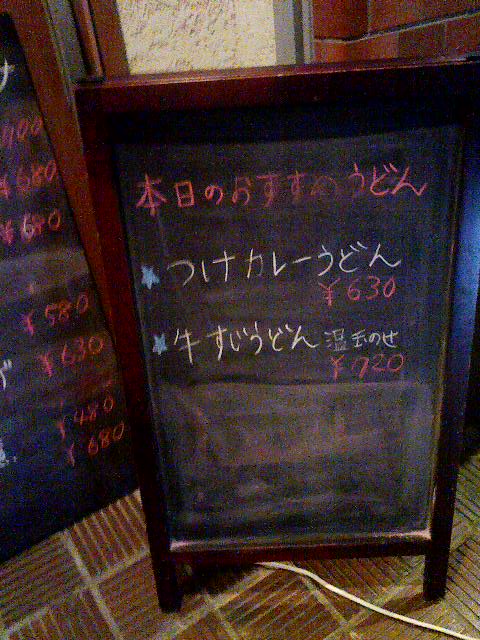 本日のおすすめうどん
つけカレーうどん
¥630
牛すじうどん 温玉のせ
¥720
¥680
¥580
¥630
¥480
¥680